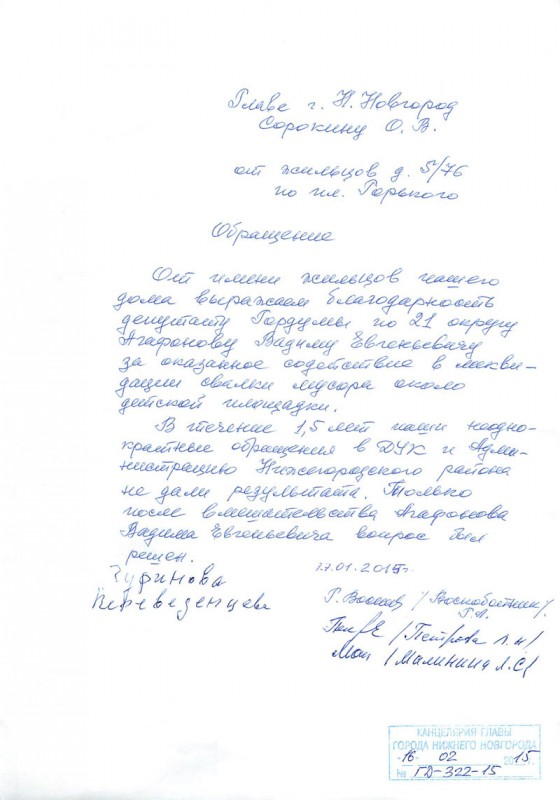 Главе г. Н. Новгород
Сорокину О. В.
от жильцов д. 5/76
по пл. Горького
Обращение
От имени жильцов нашего
дома выражаем благодарность
депутату Гордумы по 21 округу
Агафонову Вадиму Евгеньевичу
за оказанное содействие в ликви-
дации свалки мусора около
детской площадки.
В течение 1,5 лет наши неодно-
кратные обращения в ДУК и Адми-
нистрацию Нижегородского района
не дали результата. Только
после вмешательства Агафонова
Вадима Евгеньевича вопрос был
решен.
17.01.2015г.
Чуринова
Переведенцева
Г.А.
/Петрова Л.Н/
/Малинина Л.С/
КАНЦЕЛЯРИЯ ГЛАВЫ
ГОРОДА НИЖНЕГО НОВГОРОДА
16 02 2015г.
№ ГД-322-15